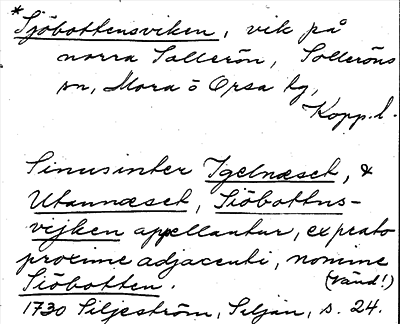 * Sjöbottensviken, vik på
norra Sollerön, Solleröns
sn, Mora o Orsa tg,
Kopp. l.
Sinus inter Igelnæset, &
Utannæset, Siöbottns-
vejken appellantur, ex prato
proxime adjacenti, nomine
Siöbotten. (Vänd!)
1730 Siljeström, Siljan, s. 24.